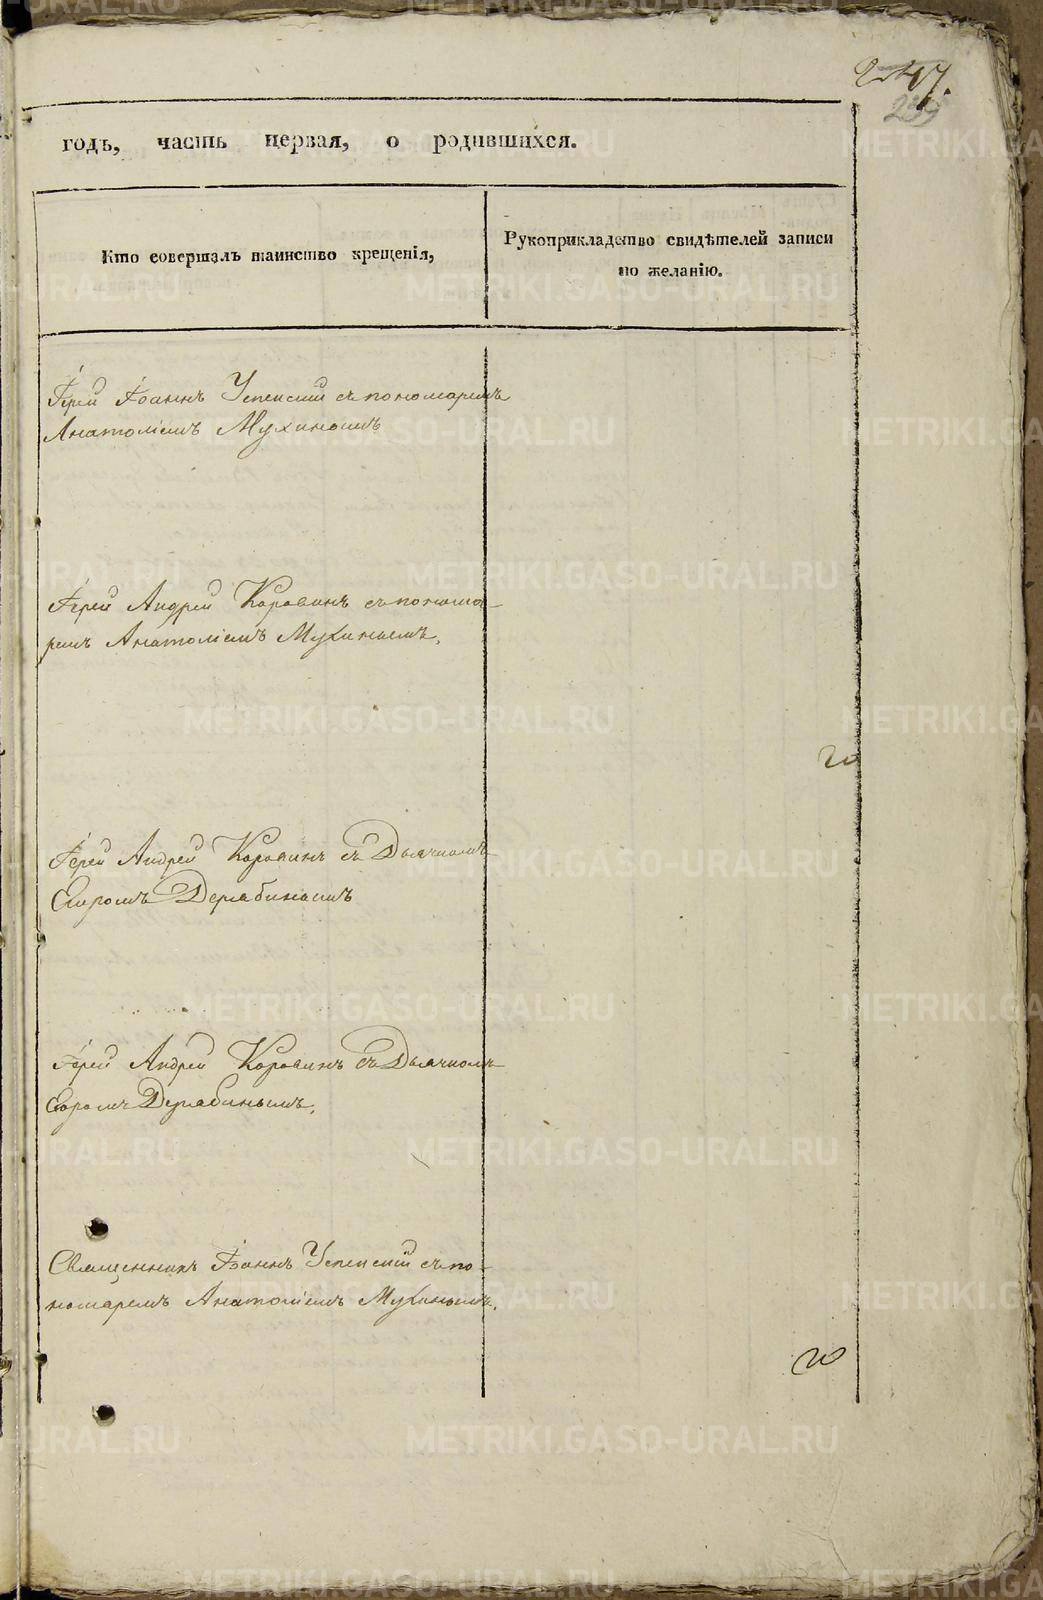 годъ, часть первая, о родившихся.
Кто совершалъ таинство крещенія,
Рукоприкладство свидѣтелей записи
по желанію.
Іерей Іоаннъ Успенскій съ пономаремъ
Анатоліемъ Мухинымъ
Іерей Андрей Коровинъ съ понома-
ремъ Анатоліемъ Мухинымъ.
Іерей Андрей Коровинъ съ Дьячкомъ
Егоромъ Дерябинымъ
Іерей Андрей Коровинъ съ Дьячкомъ
Егоромъ Дерябинымъ.
Священникъ Іоаннъ Успенскій съ по-
номаремъ Анатоліемъ Мухинымъ.
METRIKI.GASO-URAL.RU